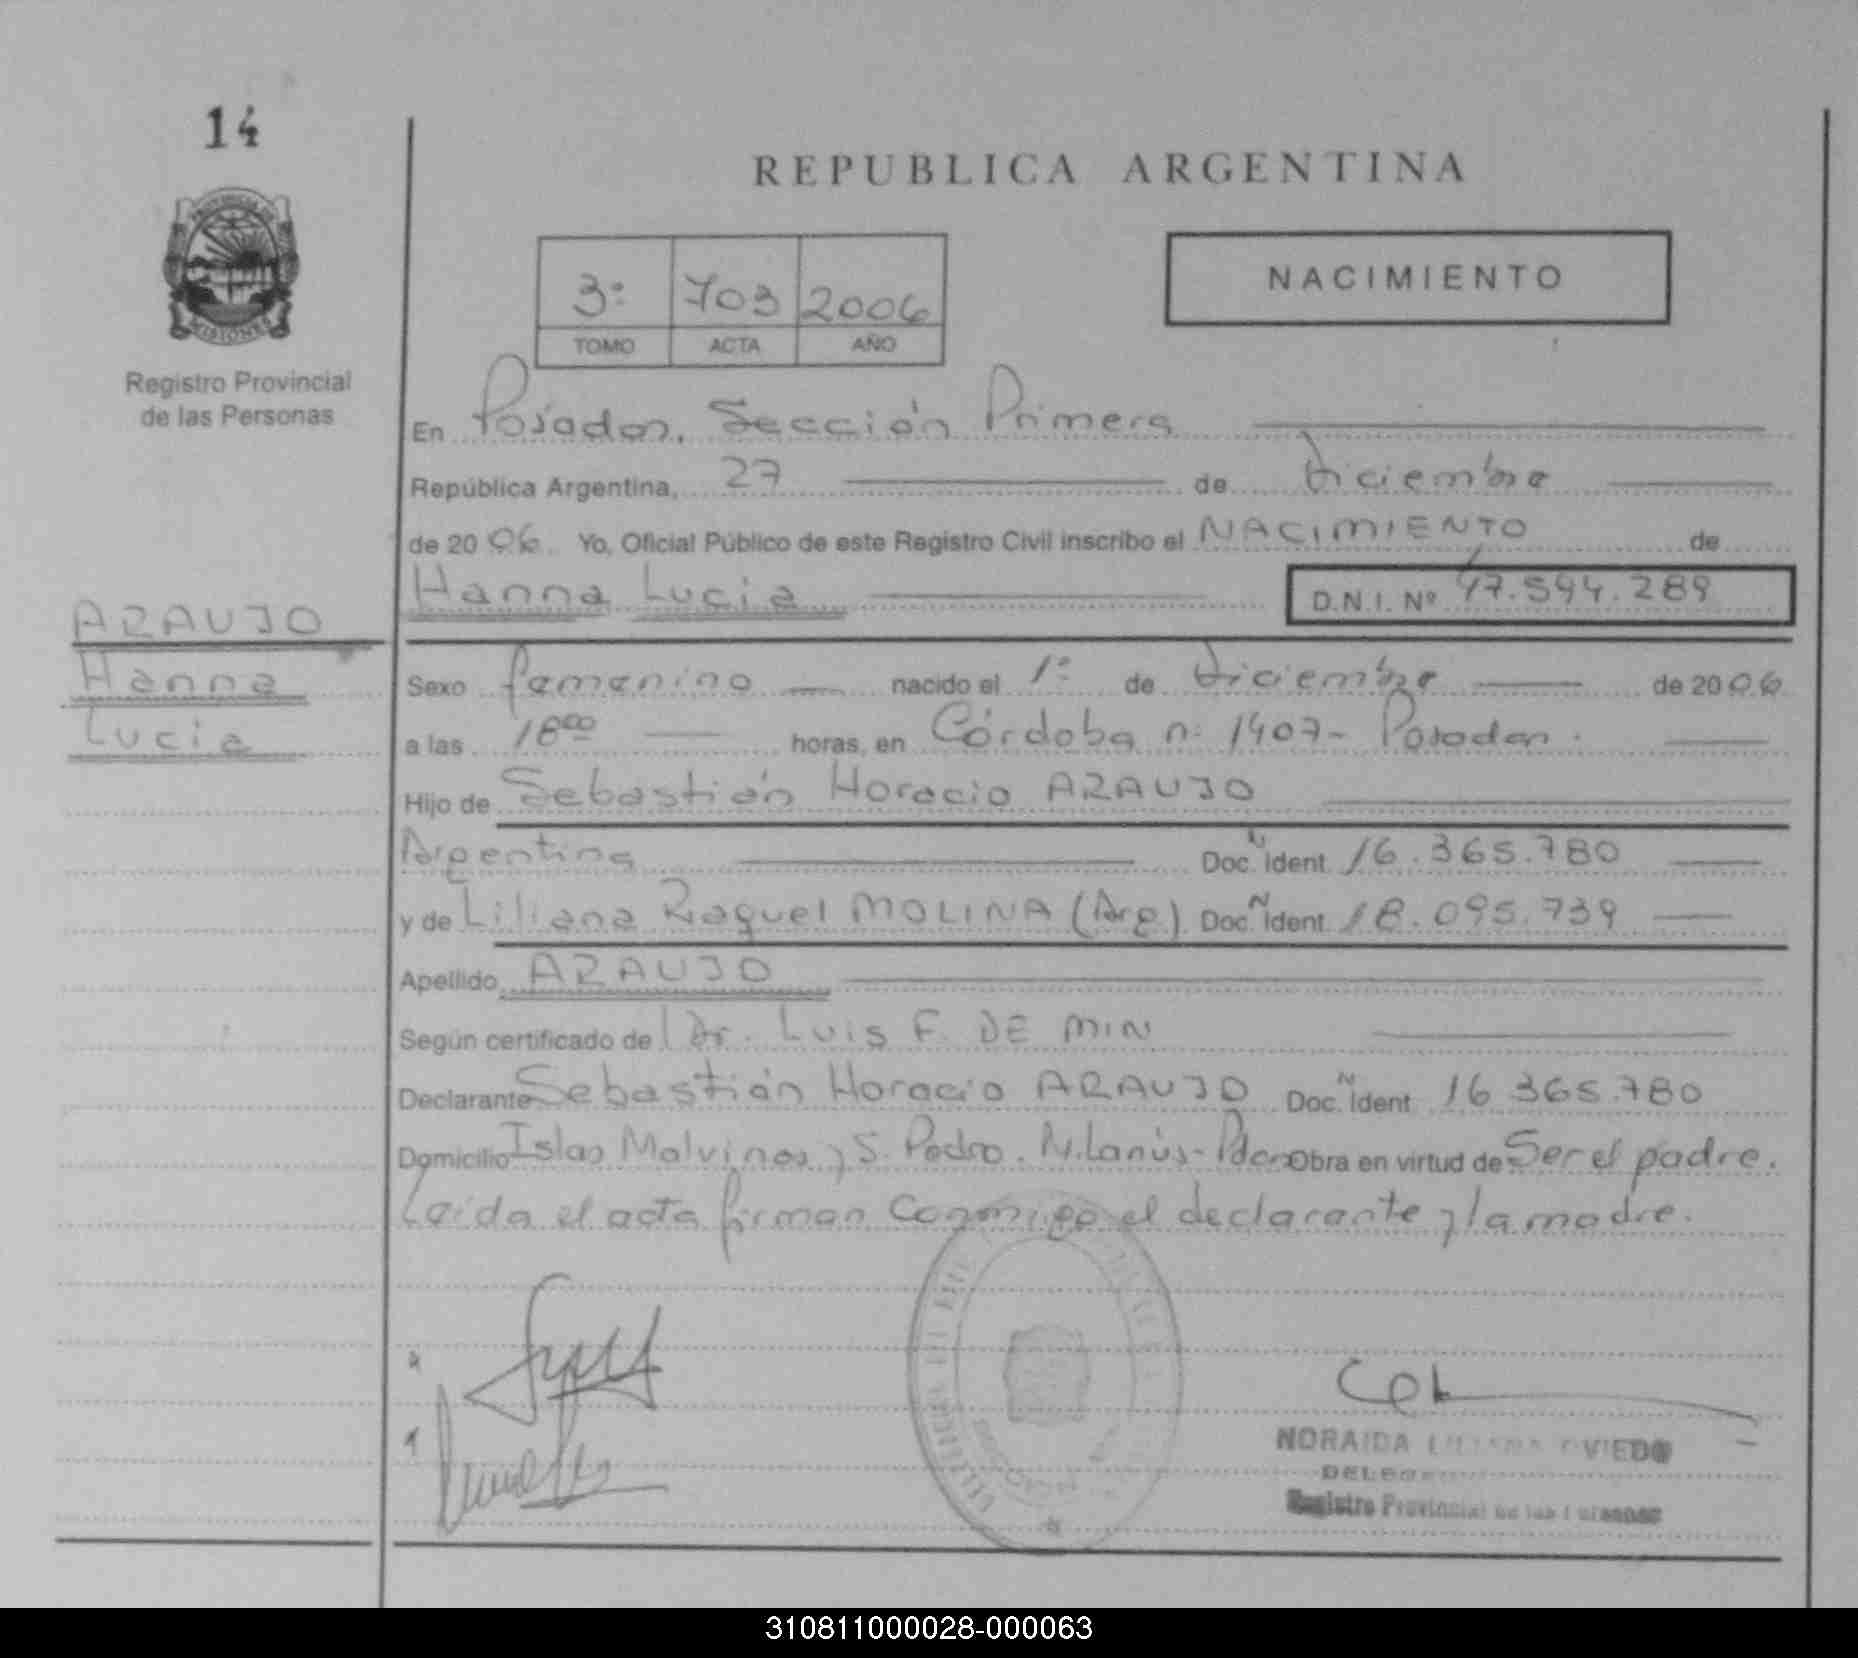 14
REPUBLICA ARGENTINA
PROVINCIA DE
MISIONES
Registro Provincial
de las Personas
3º 703 2006
TOMO ACTA AÑO
NACIMIENTO
En Posadas, Sección Primera
República Argentina, 27 de Diciembre
de 2006. Yo, Oficial Público de este Registro Civil inscribo el NACIMIENTO de
Hanna Lucia D.N.I. Nº 47.594.289
ARAUJO
Hanna
Lucia
Sexo femenino nacido el 1º de Diciembre de 2006
a las 18⁰⁰ horas, en Córdoba nº 1407- Posadas.
Hijo de Sebastián Horacio ARAUJO
Argentina Doc. Ident. 16.365.780
y de Liliana Raquel MOLINA (Arg.) Doc. Ident. 18.095.739
Apellido ARAUJO
Según certificado de Dr. Luis F. DE MIN
Declarante Sebastián Horacio ARAUJO Doc. Ident. 16.365.780
Domicilio Islas Malvinas y S. Pedro. N. Lanús- Pdas Obra en virtud de Ser el padre.
Leida el acta firman conmigo el declarante y la madre.
NORAIDA LILIANA OVIEDO
Registro Provincial de las Personas
310811000028-000063